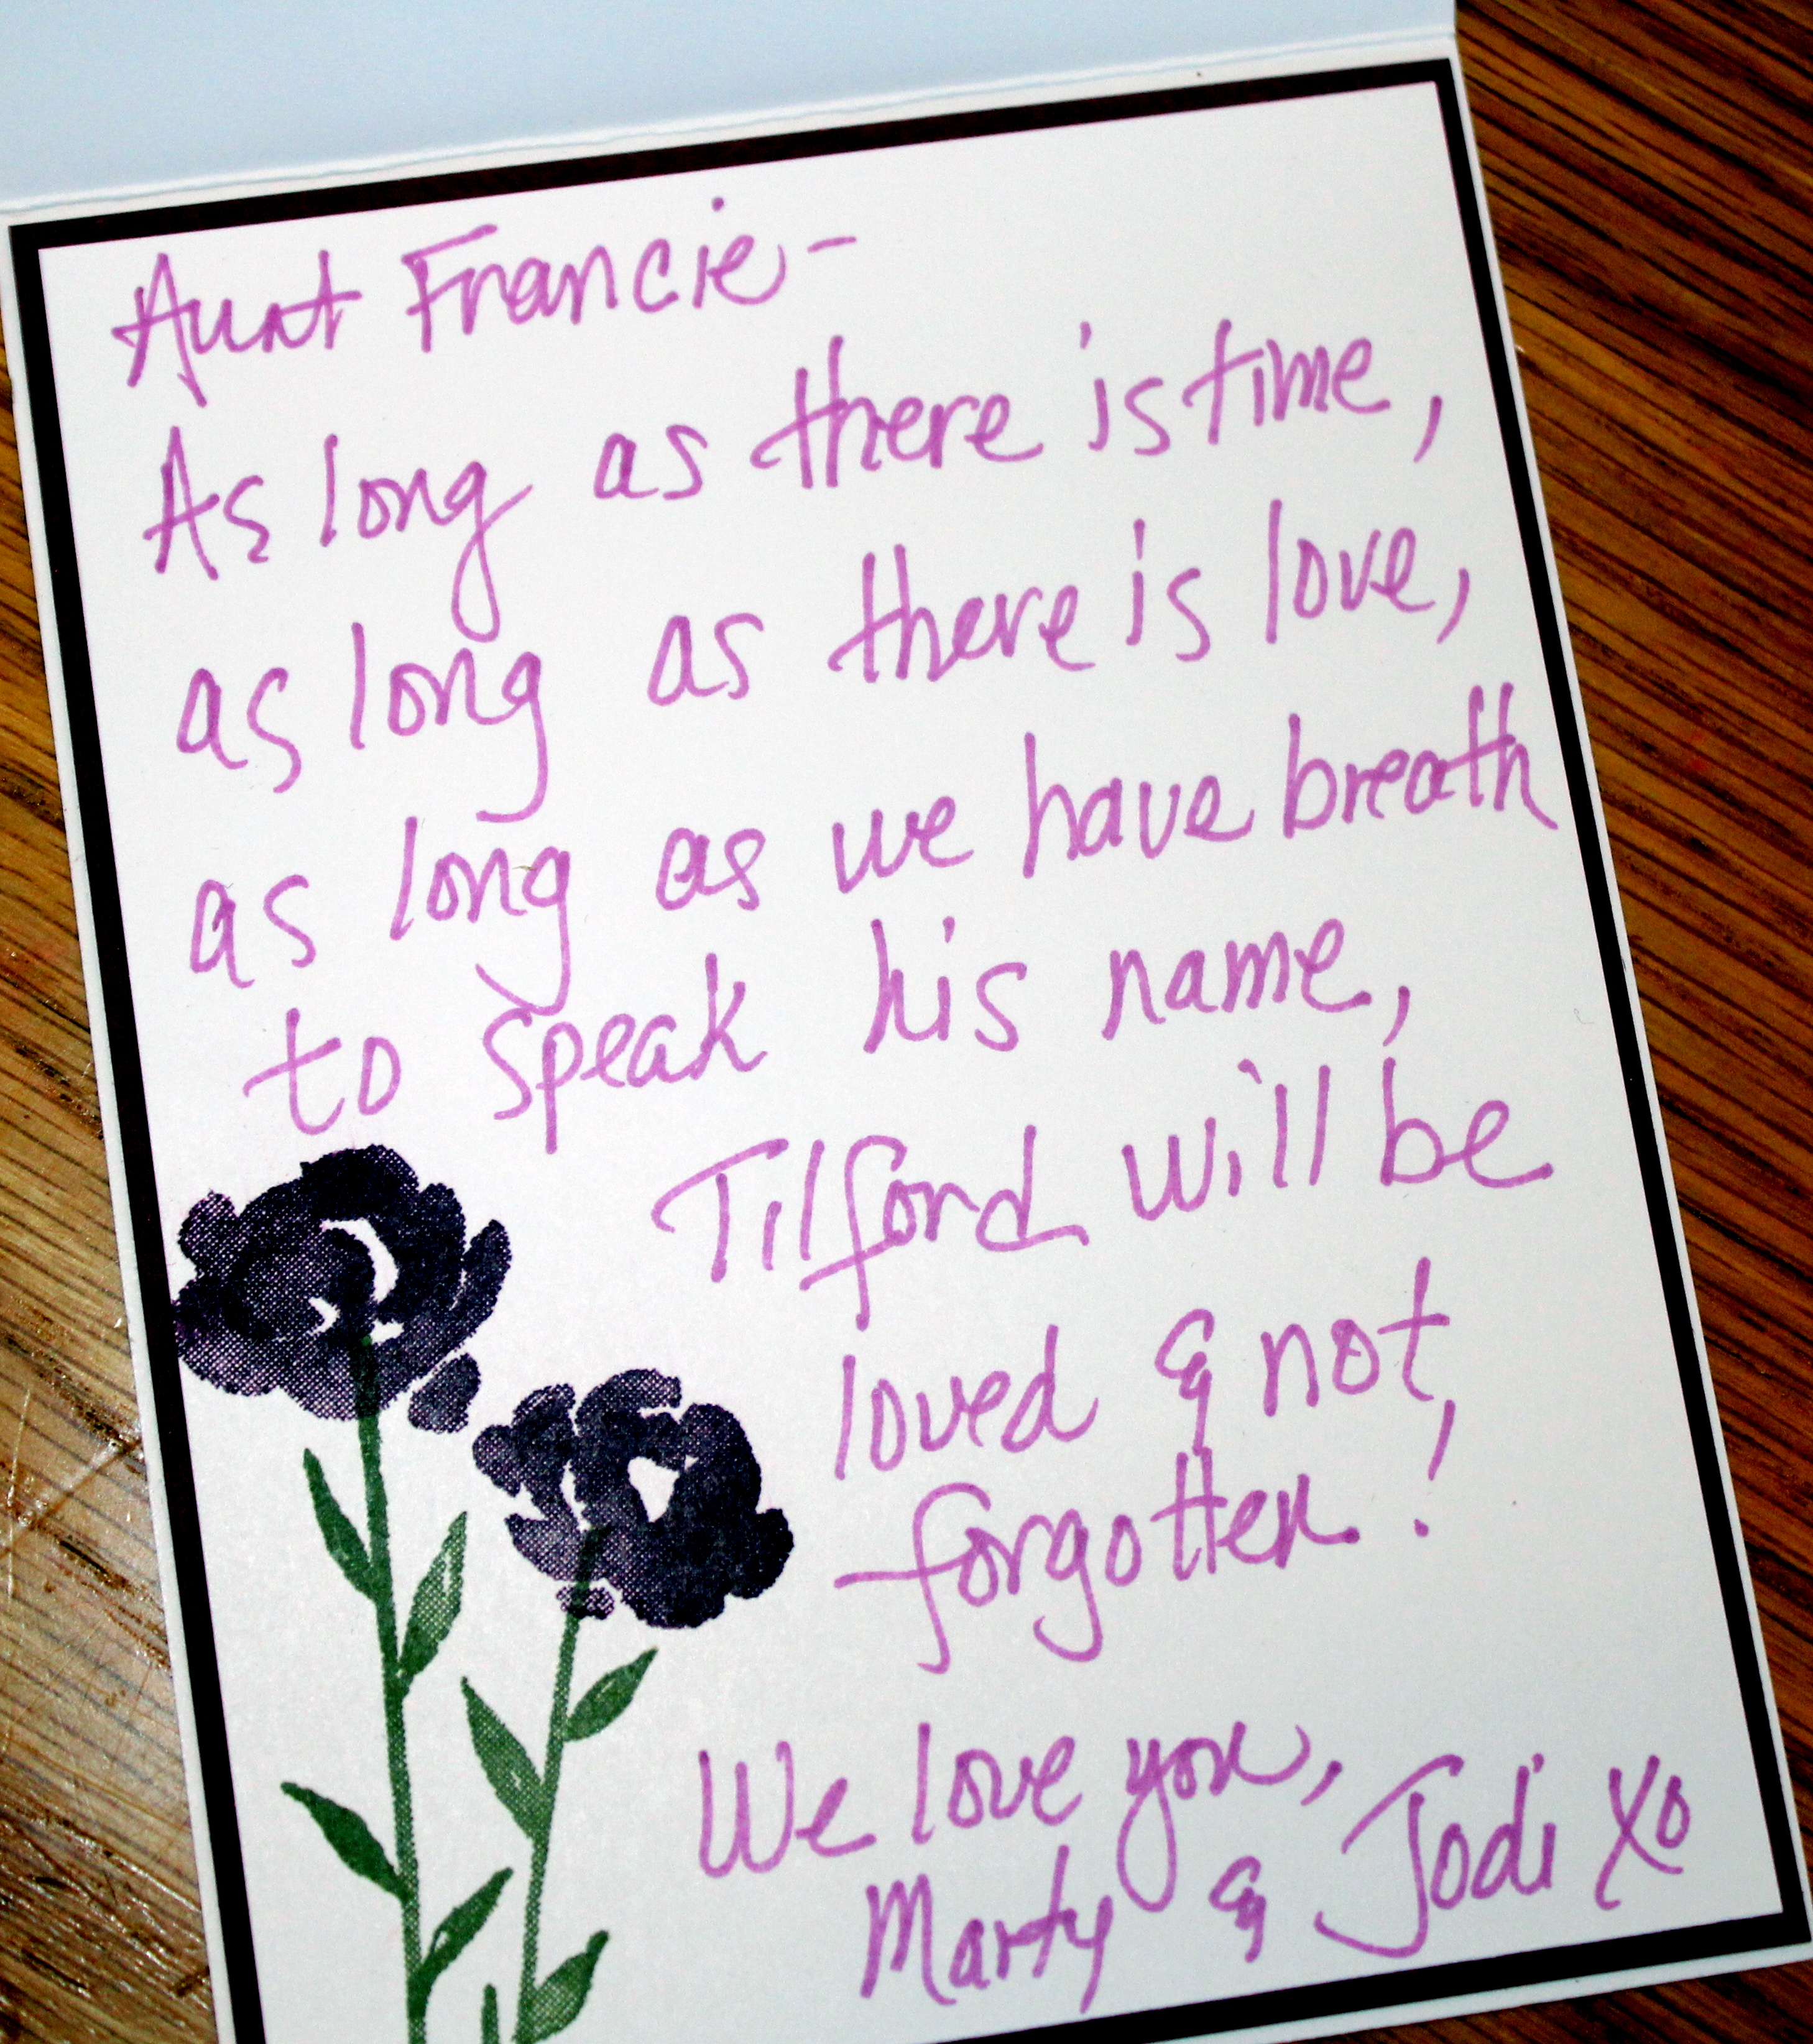 Aunt Francie-
As long as there is time,
as long as there is love,
as long as we have breath
to speak his name,
Tilford will be
loved & not
forgotten!
We love you,
Marty & Jodi XO